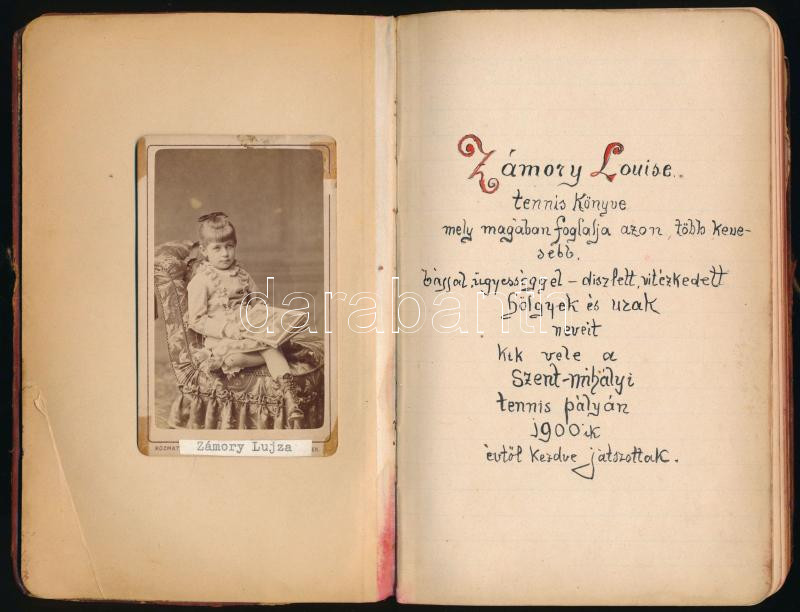 ROZMAT
Zámory Lujza
Zámory Louise.
tennis könyve
mely magában foglalja azon, több keve-
sebb.
bájjal, ügyességgel – diszlett, vitézkedett
hölgyek és urak
neveit
kik vele a
Szent-mihályi
tennis pályán
1900ik
évtől kezdve játszottak.
darabanth